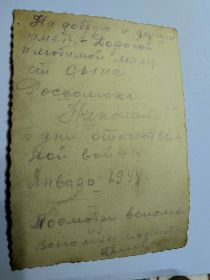 На добрую и долгую
память Дорогой
и любимой маме
от сына
Россомока
Николая
в дни отечествен
ной войны
Январь 1944 г.
Посмотри вспомни
Вспомни